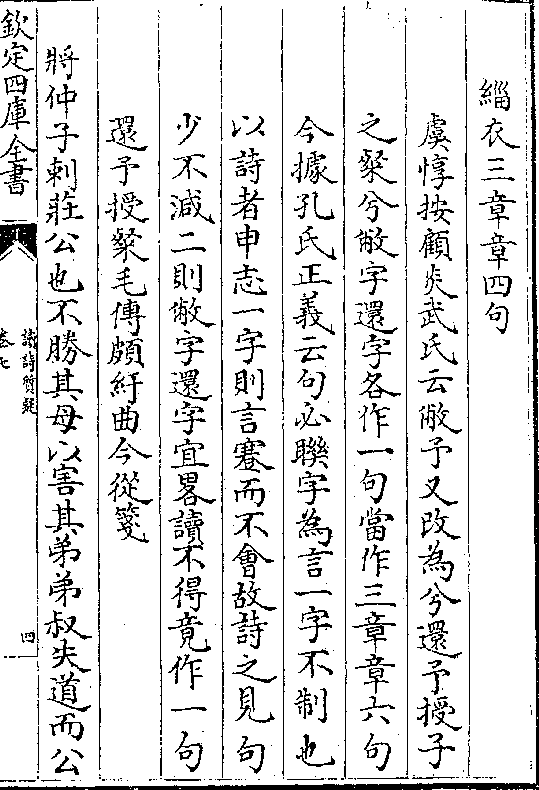 緇衣三章章四句
虞惇按顧炎武氏云敝予又改為兮還予授子
之粲兮敝字還字各作一句當作三章章六句
今據孔氏正義云句必聯字為言一字不制也
以詩者申志一字則言蹇而不會故詩之見句
少不減二則敝字還字宜畧讀不得竟作一句
還予授粲毛傳頗紆曲今從箋
將仲子刺莊公也不勝其母以害其弟弟叔失道而公
欽定四庫全書
讀詩質疑
卷七
四